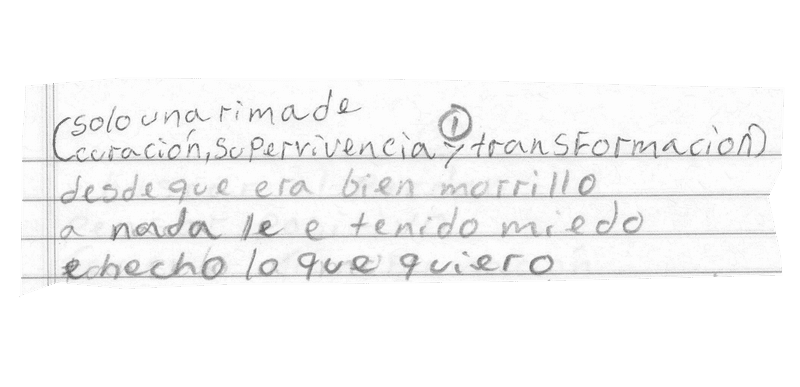 (solo una rima de
curación, supervivencia y transformación)
①
desde que era bien morrillo
a nada le e tenido miedo
e hecho lo que quiero